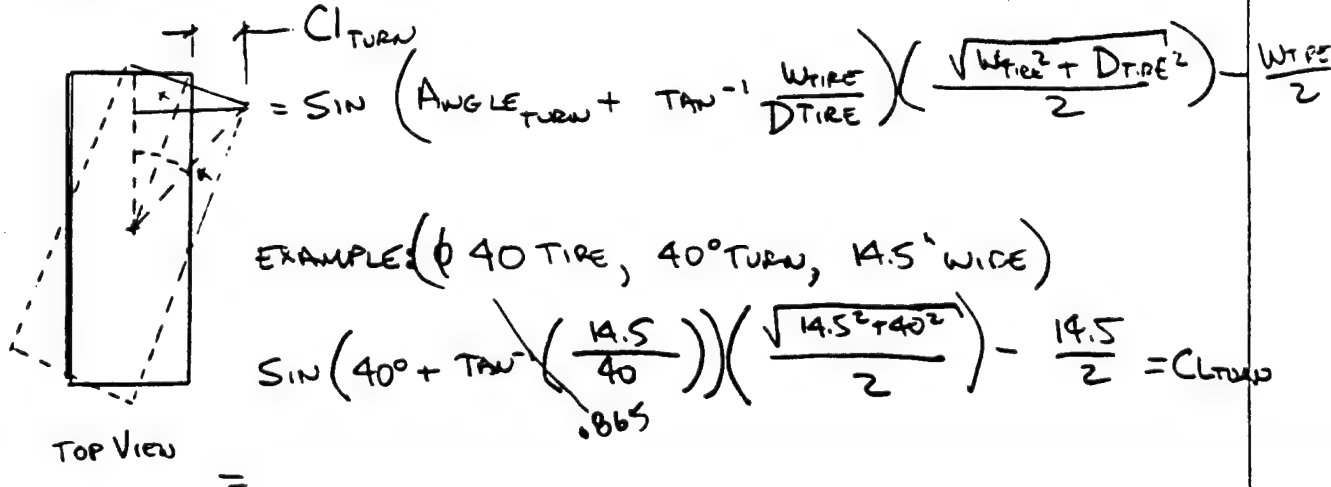 Cl TURN
= SIN (ANGLE TURN + TAN⁻¹ WTIRE/DTIRE)(√(WTIRE² + DTIRE²)/2) - WTIRE/2
x
x
EXAMPLE: (ϕ 40 TIRE, 40° TURN, 14.5" WIDE)
SIN (40° + TAN⁻¹(14.5/40))(√(14.5²+40²)/2) - 14.5/2 = CLTURN
.865
TOP VIEW
=